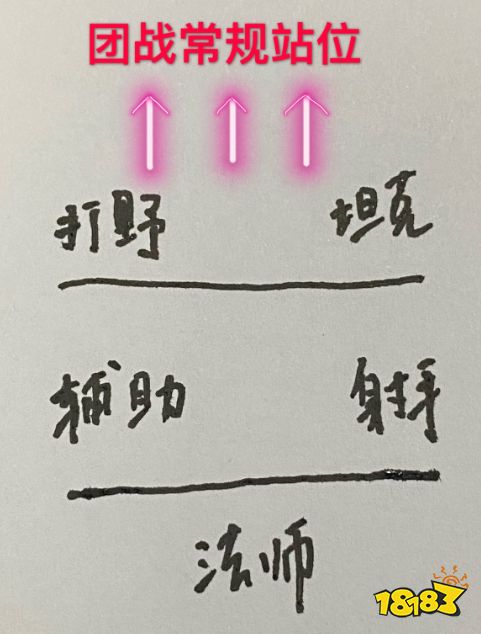 团战常规站位
打野 坦克
辅助 射手
法师
18183